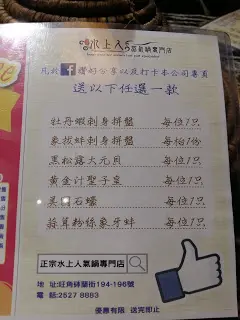 水上人氣鍋專門店
凡於f讚好分享以及打卡本公司專頁
送以下任選一款
牡丹蝦刺身拼盤 每位1只
象拔蚌刺身拼盤 每枱1份
黑松露大元貝 每位1只
黃金汁聖子皇 每位1只
美國石蠔 每位1只
蒜茸粉絲象牙蚌 每位1只
正宗水上人氣鍋專門店
地 址:旺角砵蘭街194-196號
電 話:2527 8883
優惠有限 送完即止